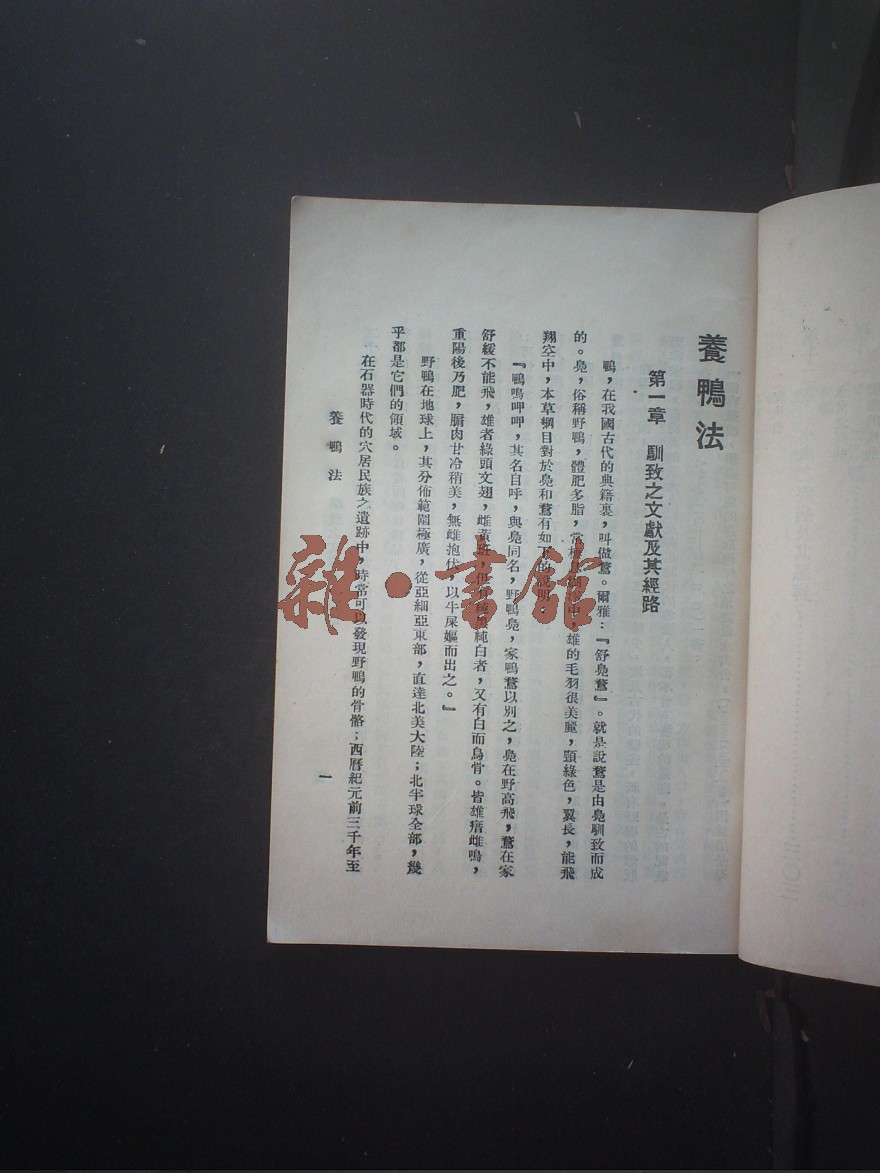 養鴨法
第一章 馴致之文獻及其經路
鴨，在我國古代的典籍裏，叫做鶩。爾雅：『舒鳧鶩』。就是說鶩是由鳧馴致而成
的。鳧，俗稱野鴨，體肥多脂，常棲 中，雄的毛羽很美麗，頸綠色，翼長，能飛
翔空中，本草綱目對於鳧和鶩有如下的說明：
『鴨鳴呷呷，其名自呼，與鳧同名，野鴨鳧，家鴨鶩以別之，鳧在野高飛，鶩在家
舒緩不能飛，雄者綠頭文翅，雌黃斑，但有純黑純白者，又有白而烏骨。皆雄瘖雌鳴，
重陽後乃肥，腯肉甘冷稍美，無雌抱伏，以牛屎嫗而出之。』
野鴨在地球上，其分佈範圍極廣，從亞細亞東部，直達北美大陸；北半球全部，幾
乎都是它們的領域。
在石器時代的穴居民族之遺跡中，時常可以發現野鴨的骨骼；西曆紀元前三千年至
養鴨法
一
雜·書館